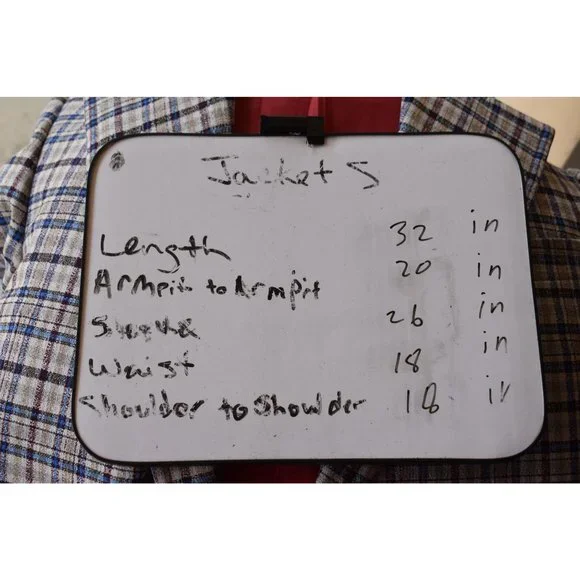 Jacket S
Length 32 in
Armpit to Armpit 20 in
26 in
Waist 18 in
Shoulder to Shoulder 18 in